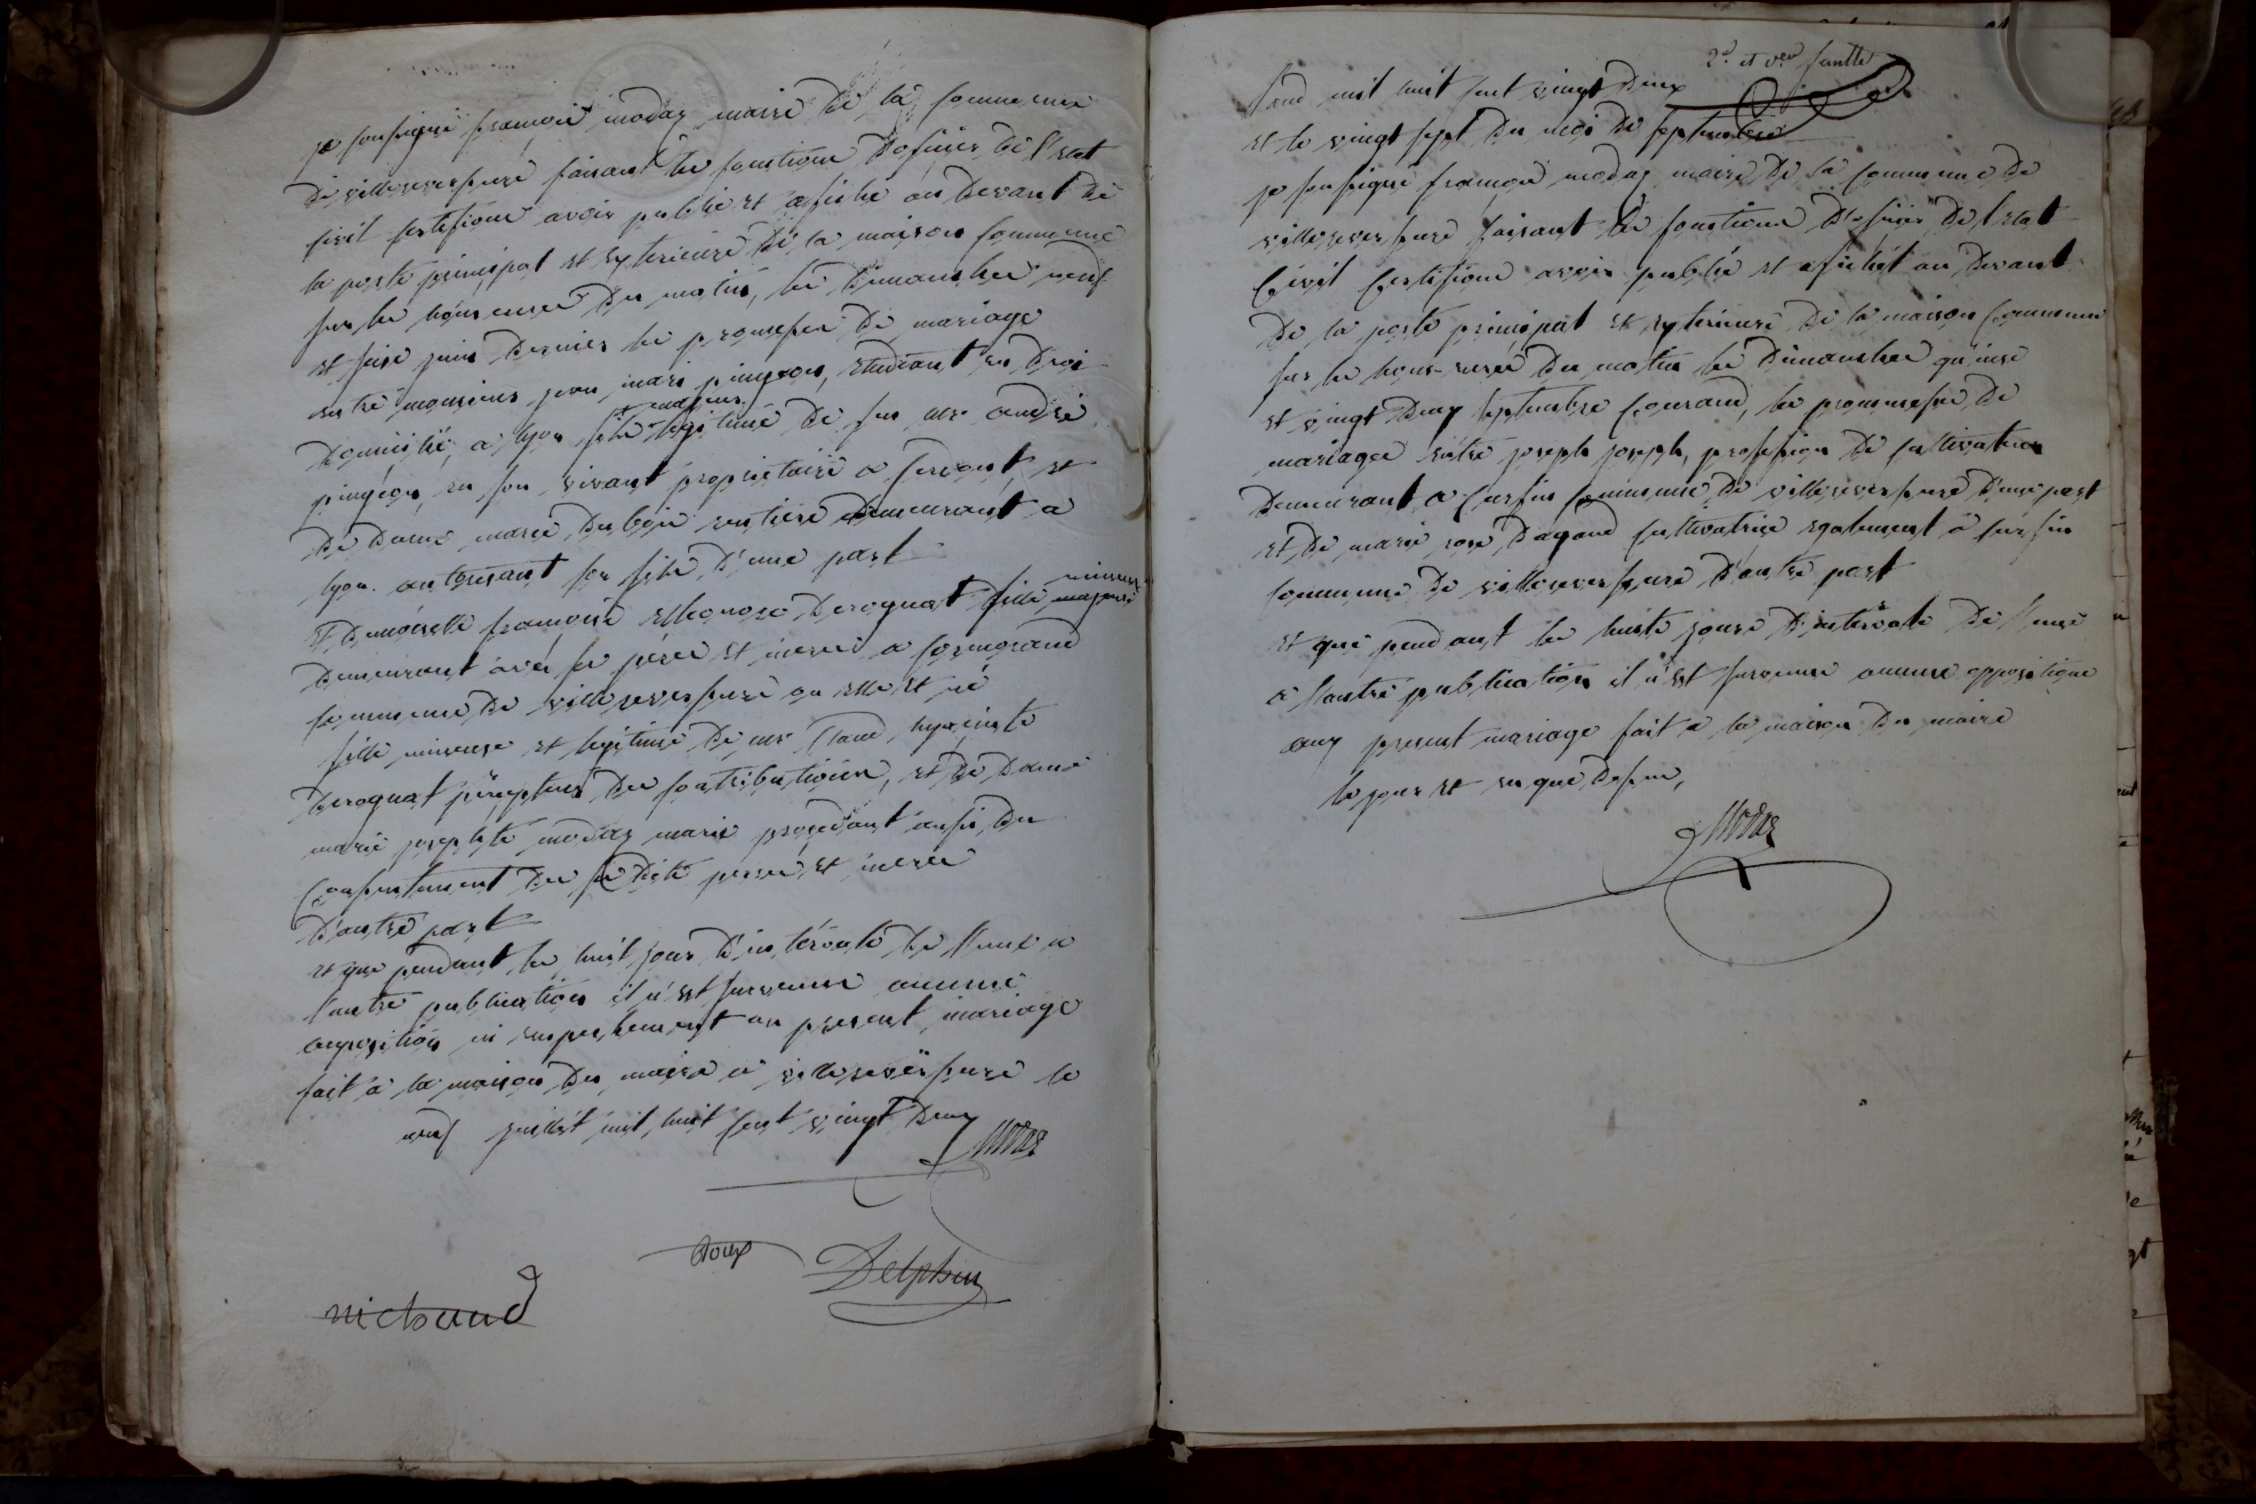 je soussigné françois modas maire de la commune
de villereversure faisant les fonctions d'oficier de l'etat
civil certifions avoir publié et afiché au devant de
la porte principal et exterieure de la maison commune
sur les onze heures du matin, les dimanches neuf
et seize juin dernier les promesses de mariage
entre monsieur jean mari pingeon, etudiant en droi
domicilié a lyon fils et majeur legitime de feu mr andré
pingeon, en son vivant propriétaire a Servant, et
de dame marie dubois rentiere demeurant a
lyon. autorisant son fils d'une part
Et demoiselle françoise elleonore deroguat fille majeure mineure
demeurant avec ses peres et meres a cormorand
commune de villereversure ou elle et né
fille mineure et legitime de mr Claud hyacinte
deroguat percepteur des contributions, et de dame
marie josephte modas marie procedant ausi du
Consentement des susdits peres et meres
D'autre part
et que pendant les huit jours d'intervale de l'une a
l'autre publication il n'est survenue aucune
opposition ni empechement au present mariage
fait a la maison du maire a villereversure le
neuf juillet mil huit cent vingt deux
Modas
Roux
Delphin
michaud
2e et der feuille
L'an mil huit cent vingt deux
et le vingt sept du moi de septembre
je soussigné françois modas maire de la commune de
villereversure faisant les fonctions d'oficier de l'etat
Civil Certifions avoir publié et afichét au devant
de la porte principal et exterieure de la maison commune
sur les onze heures du matin les dimanches quinze
et vingt deux septembre Courand, les promesses de
mariages entre joseph joseph, profession de cultivateur
demeurant a Cursin commune de villereversure d'une part
et de marie rose dagand cultivatrice egalement a cursin
commune de villereversure d'autre part
et que pendant les huits jours d'intervale de l'une
a l'autre publication il n'est survenue aucune opposition
aux present mariage fait a la maison du maire
les jour et an que dessus,
Modas